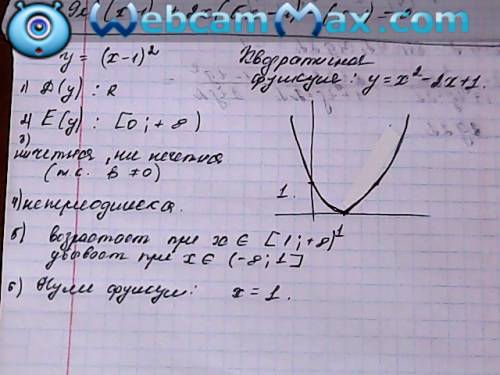 WebcamMax.com
y = (x-1)²
Квадратичная
функция: y=x²-2x+1.
1) D(y) : R
2) E(y) : [0 ; +8)
3)
ни четная, ни нечетная
(т.к. b ≠0)
1.
4) непериодическая.
1
5) возрастает при x ∈ [1 ; +8)
убывает при x ∈ (-8 ; 1]
6) Нули функции: x = 1.